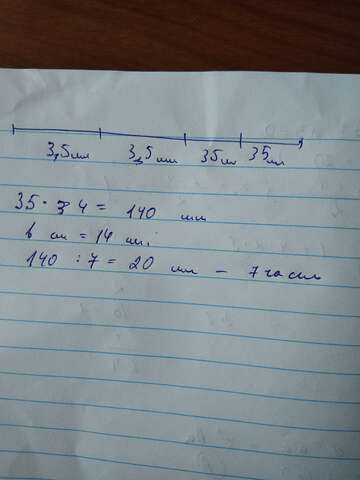 3,5мм 3,5мм 35мм 35мм
35 · 4 = 140 мм
в см = 14 см;
140 : 7 = 20 мм — 7 часть